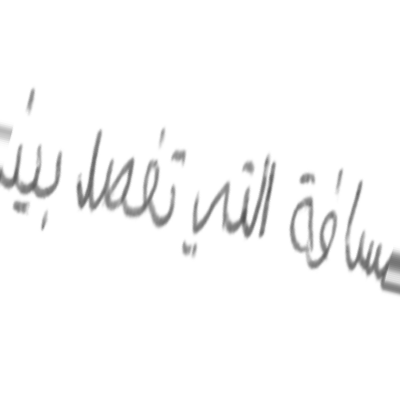 مسافة التي تفصل بين